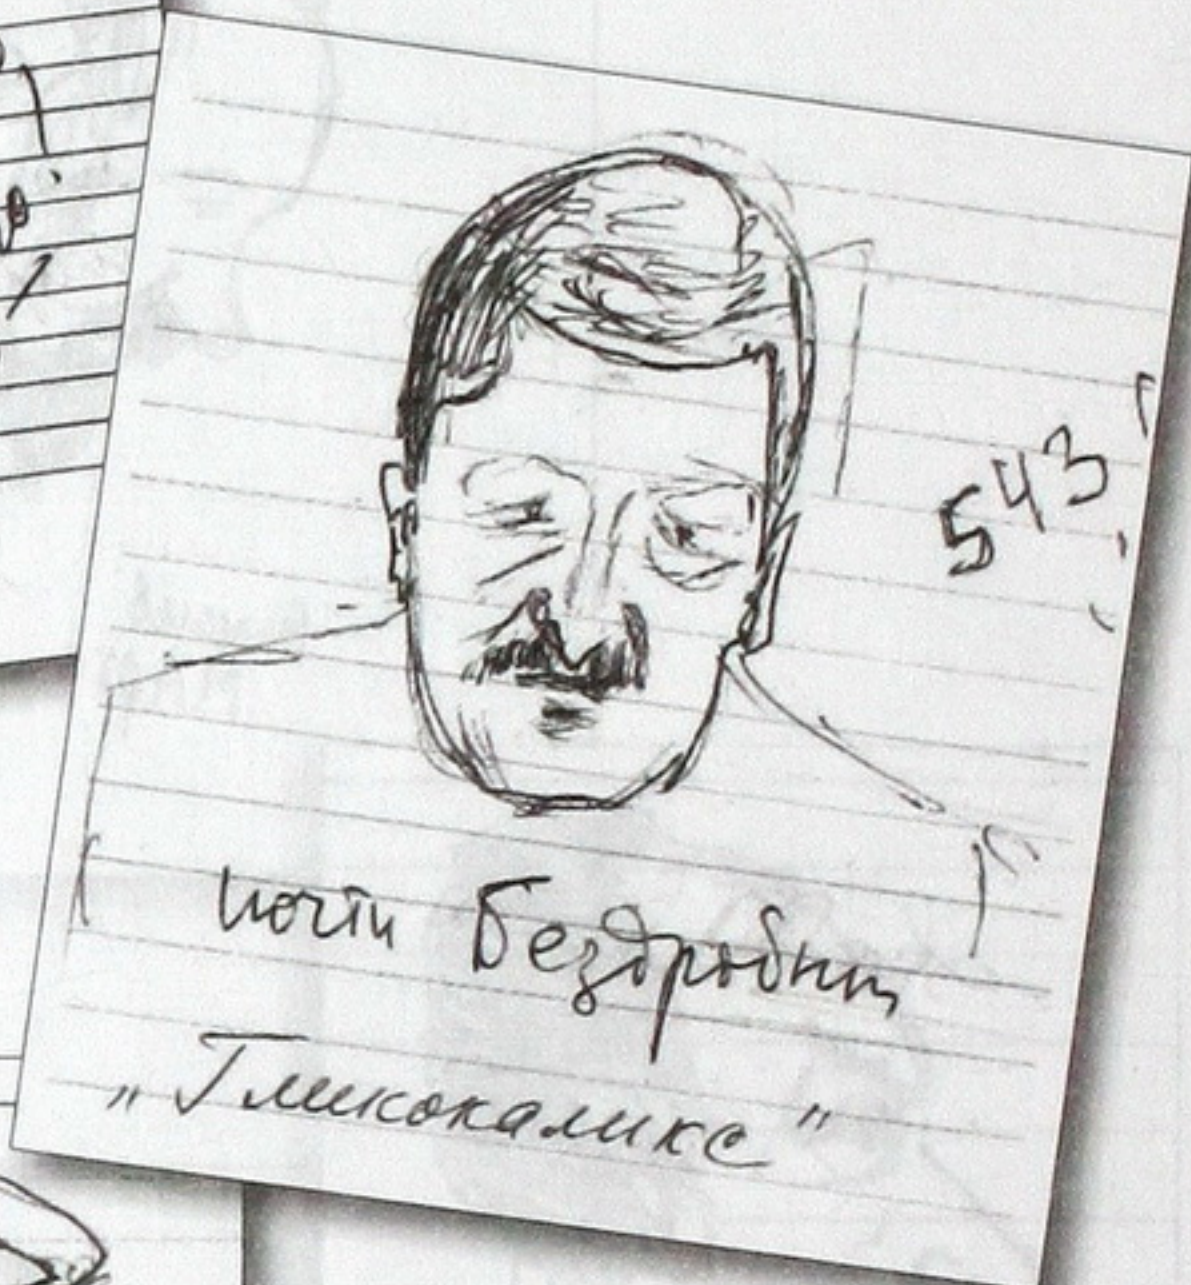 543
почти Бездробный
„Гликокаликс"